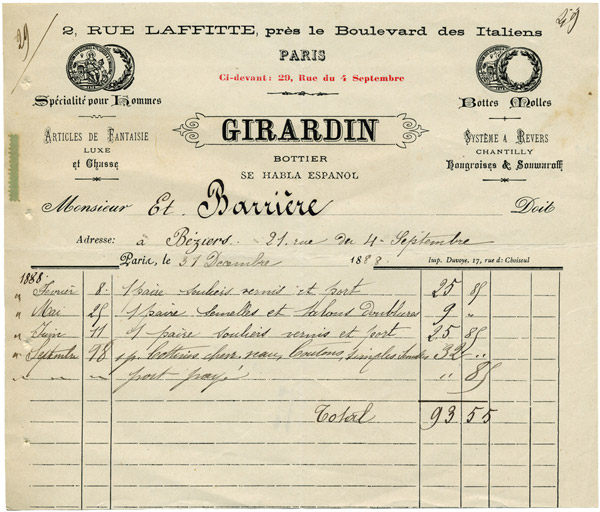 29/
249
2, RUE LAFFITTE, près le Boulevard des Italiens
PARIS
Ci-devant: 29, Rue du 4 Septembre
Spécialité pour Hommes
Bottes Molles
ARTICLES DE FANTAISIE
LUXE
et Chasse
GIRARDIN
BOTTIER
SE HABLA ESPANOL
SYSTÈME A REVERS
CHANTILLY
Hongroises & Souwaroff
Monsieur Et. Barrière Doit
Adresse: à Béziers 21 rue du 4 Septembre
Paris, le 31 Decembre 1888. Imp. Duvoye, 17, rue de Choiseul
1888
" Fevrier 8. 1 paire souliers vernis et port 25 85
" Mai 25 1 paire semelles et talons Doublures 9 "
" Juin 11 1 paire souliers vernis et port 25 85
" Septembre 28 boutons, simples 32 "
" " " port payé " 85
Total 93 55